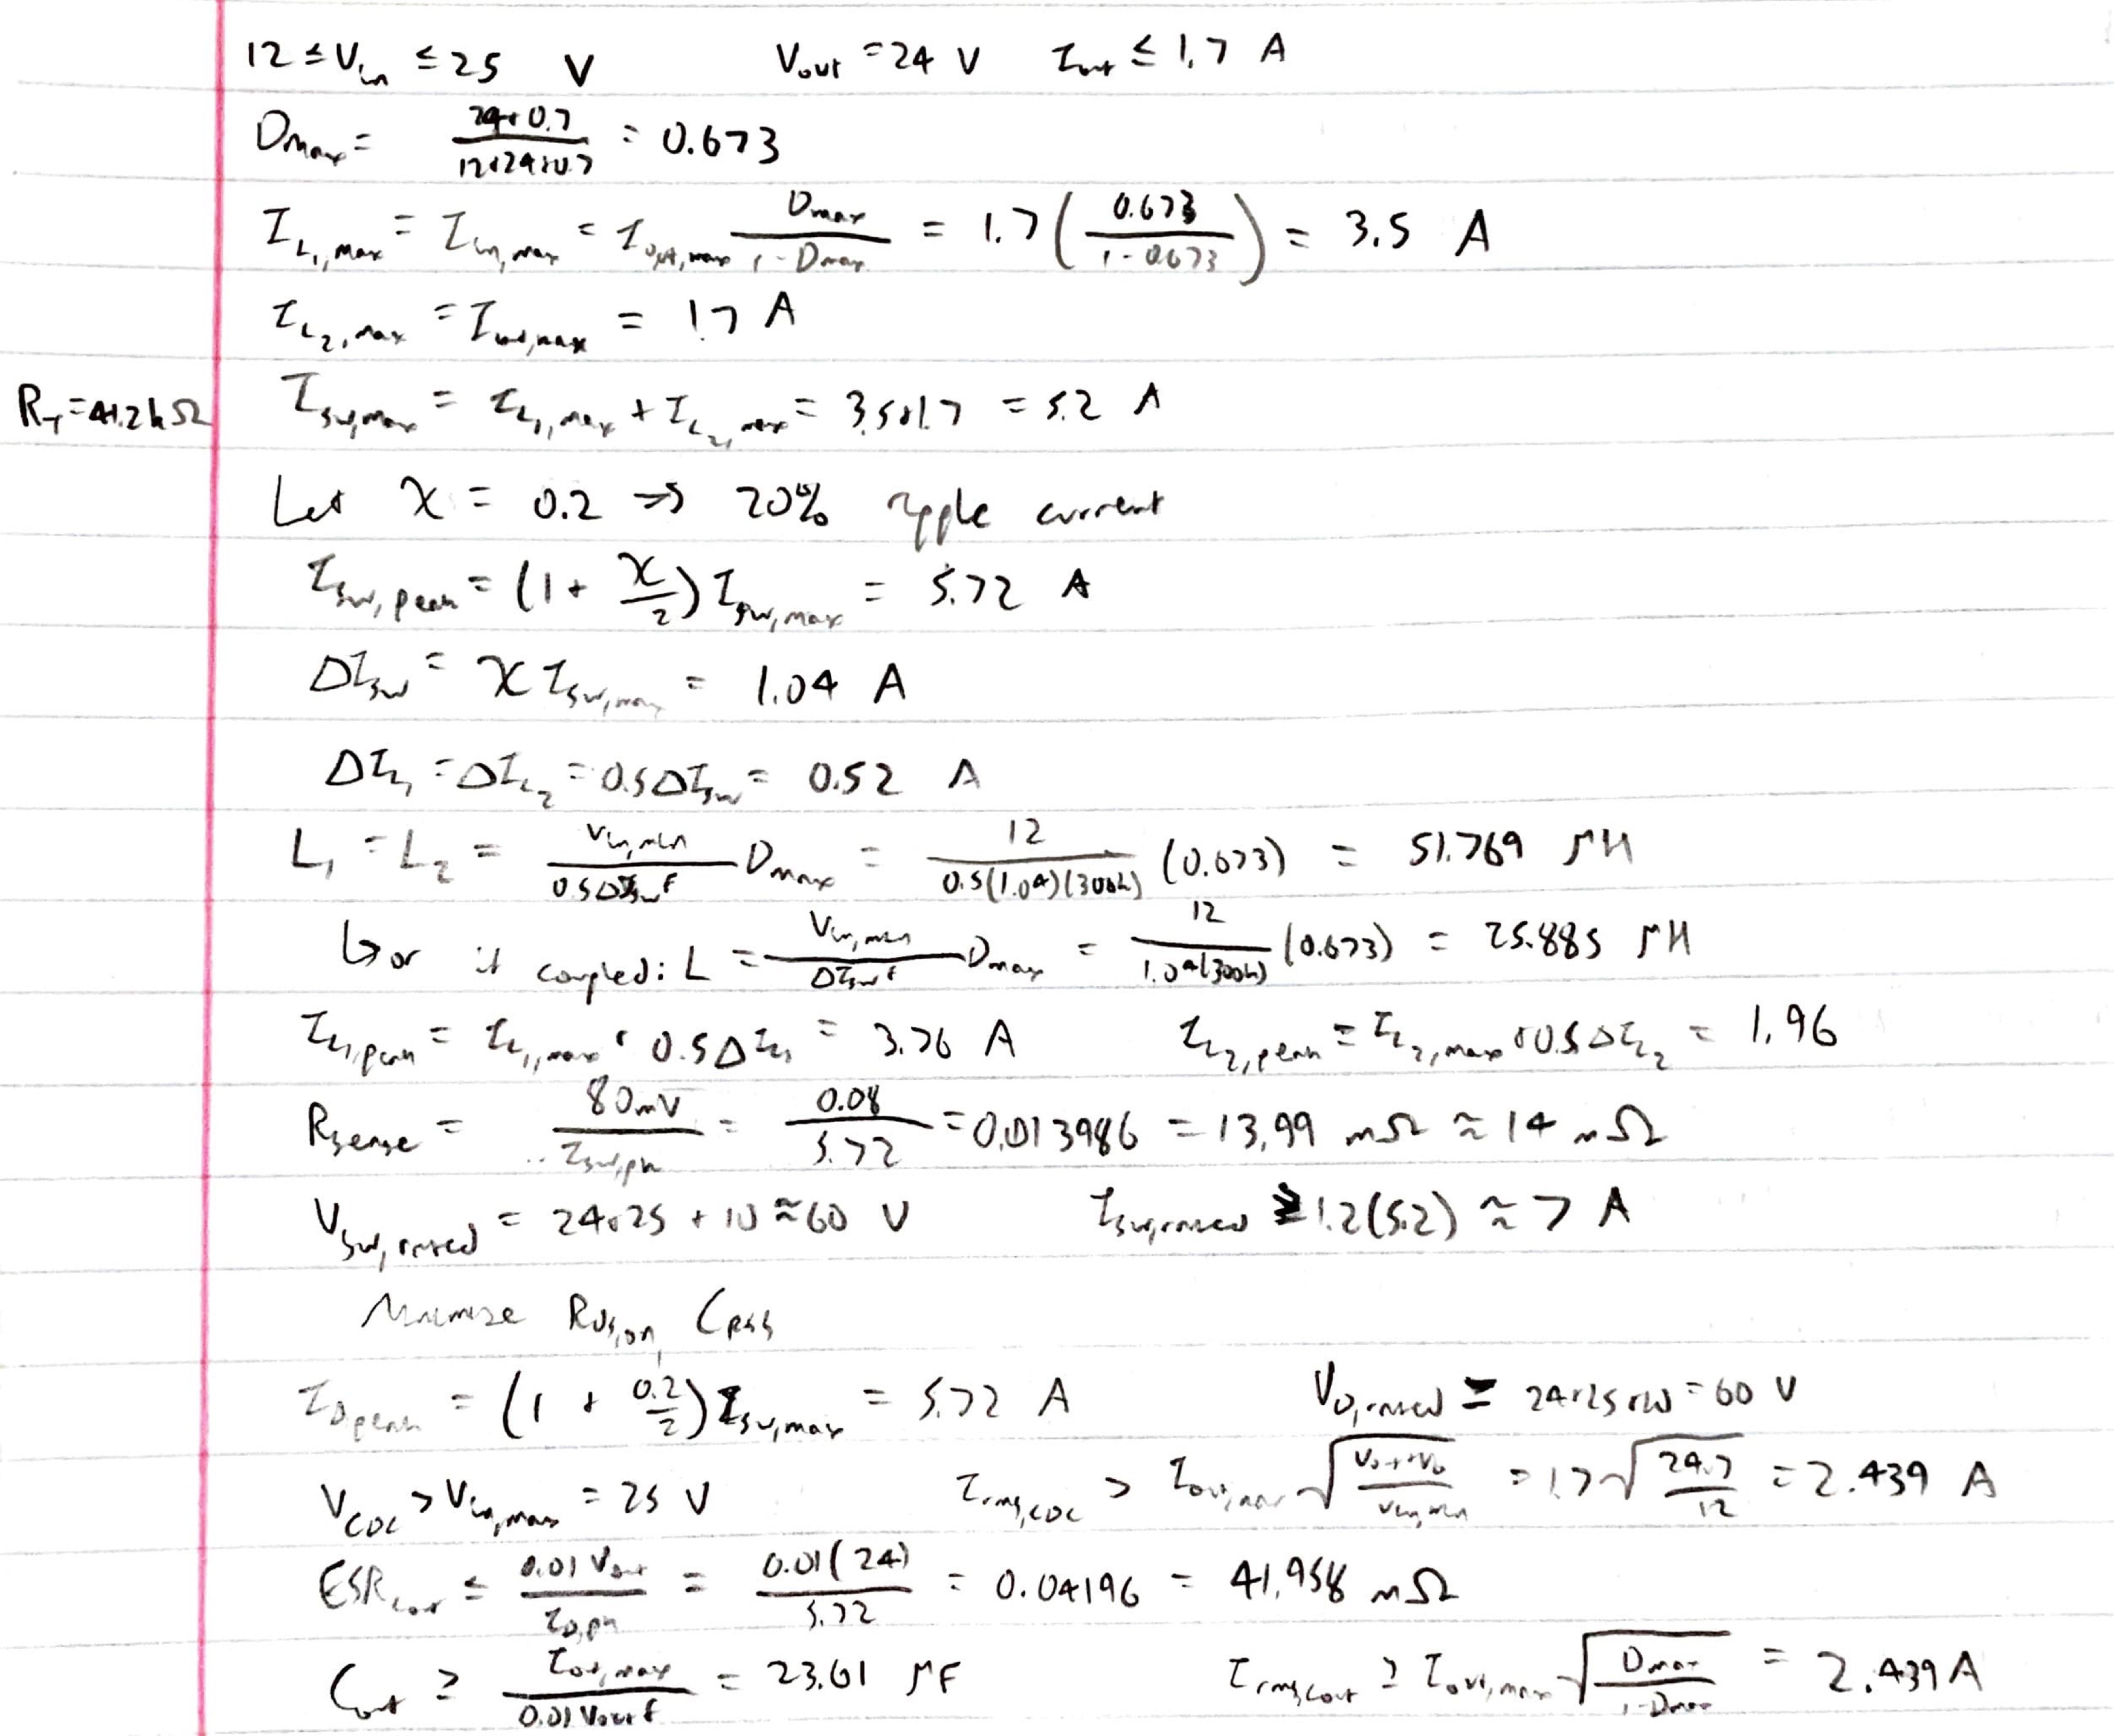 12 ≤ V_in ≤ 25 V V_out = 24 V I_out ≤ 1.7 A
D_max = (24+0.7)/(12+24+0.7) = 0.673
I_L1,max = I_in,max = I_out,max D_max/(1-D_max) = 1.7 (0.673/(1-0.673)) = 3.5 A
I_L2,max = I_out,max = 1.7 A
R_T = 41.2kΩ I_sw,max = I_L1,max + I_L2,max = 3.5+1.7 = 5.2 A
Let χ = 0.2 ⇒ 20% ripple current
I_sw,peak = (1 + χ/2) I_sw,max = 5.72 A
ΔI_sw = χ I_sw,max = 1.04 A
ΔI_L1 = ΔI_L2 = 0.5ΔI_sw = 0.52 A
L_1 = L_2 = V_in,min/(0.5ΔI_sw f) D_max = 12/(0.5(1.04)(300k)) (0.673) = 51.769 μH
↳ or if coupled: L = V_in,min/(ΔI_sw f) D_max = 12/(1.04(300k)) (0.673) = 25.885 μH
I_L1,peak = I_L1,max + 0.5ΔI_L1 = 3.76 A I_L2,peak = I_L2,max + 0.5ΔI_L2 = 1.96
R_sense = 80mV/I_sw,pk = 0.08/5.72 = 0.013986 = 13.99 mΩ ≈ 14 mΩ
V_sw,rated = 24+25+10 ≈ 60 V I_sw,rated ≥ 1.2(5.2) ≈ 7 A
Minimize R_DS,on, C_RSS
I_D,peak = (1 + 0.2/2) I_sw,max = 5.72 A V_D,rated ≥ 24+25+10 = 60 V
V_CDC > V_in,max = 25 V I_rms,CDC > I_out,max √((V_out+V_D)/V_in,min) = 1.7 √(24.7/12) = 2.439 A
ESR_cout ≤ 0.01 V_out/I_D,pk = 0.01(24)/5.72 = 0.04196 = 41.958 mΩ
C_out ≥ I_out,max/(0.01 V_out f) = 23.61 μF I_rms,cout ≥ I_out,max √(D_max/(1-D_max)) = 2.439 A